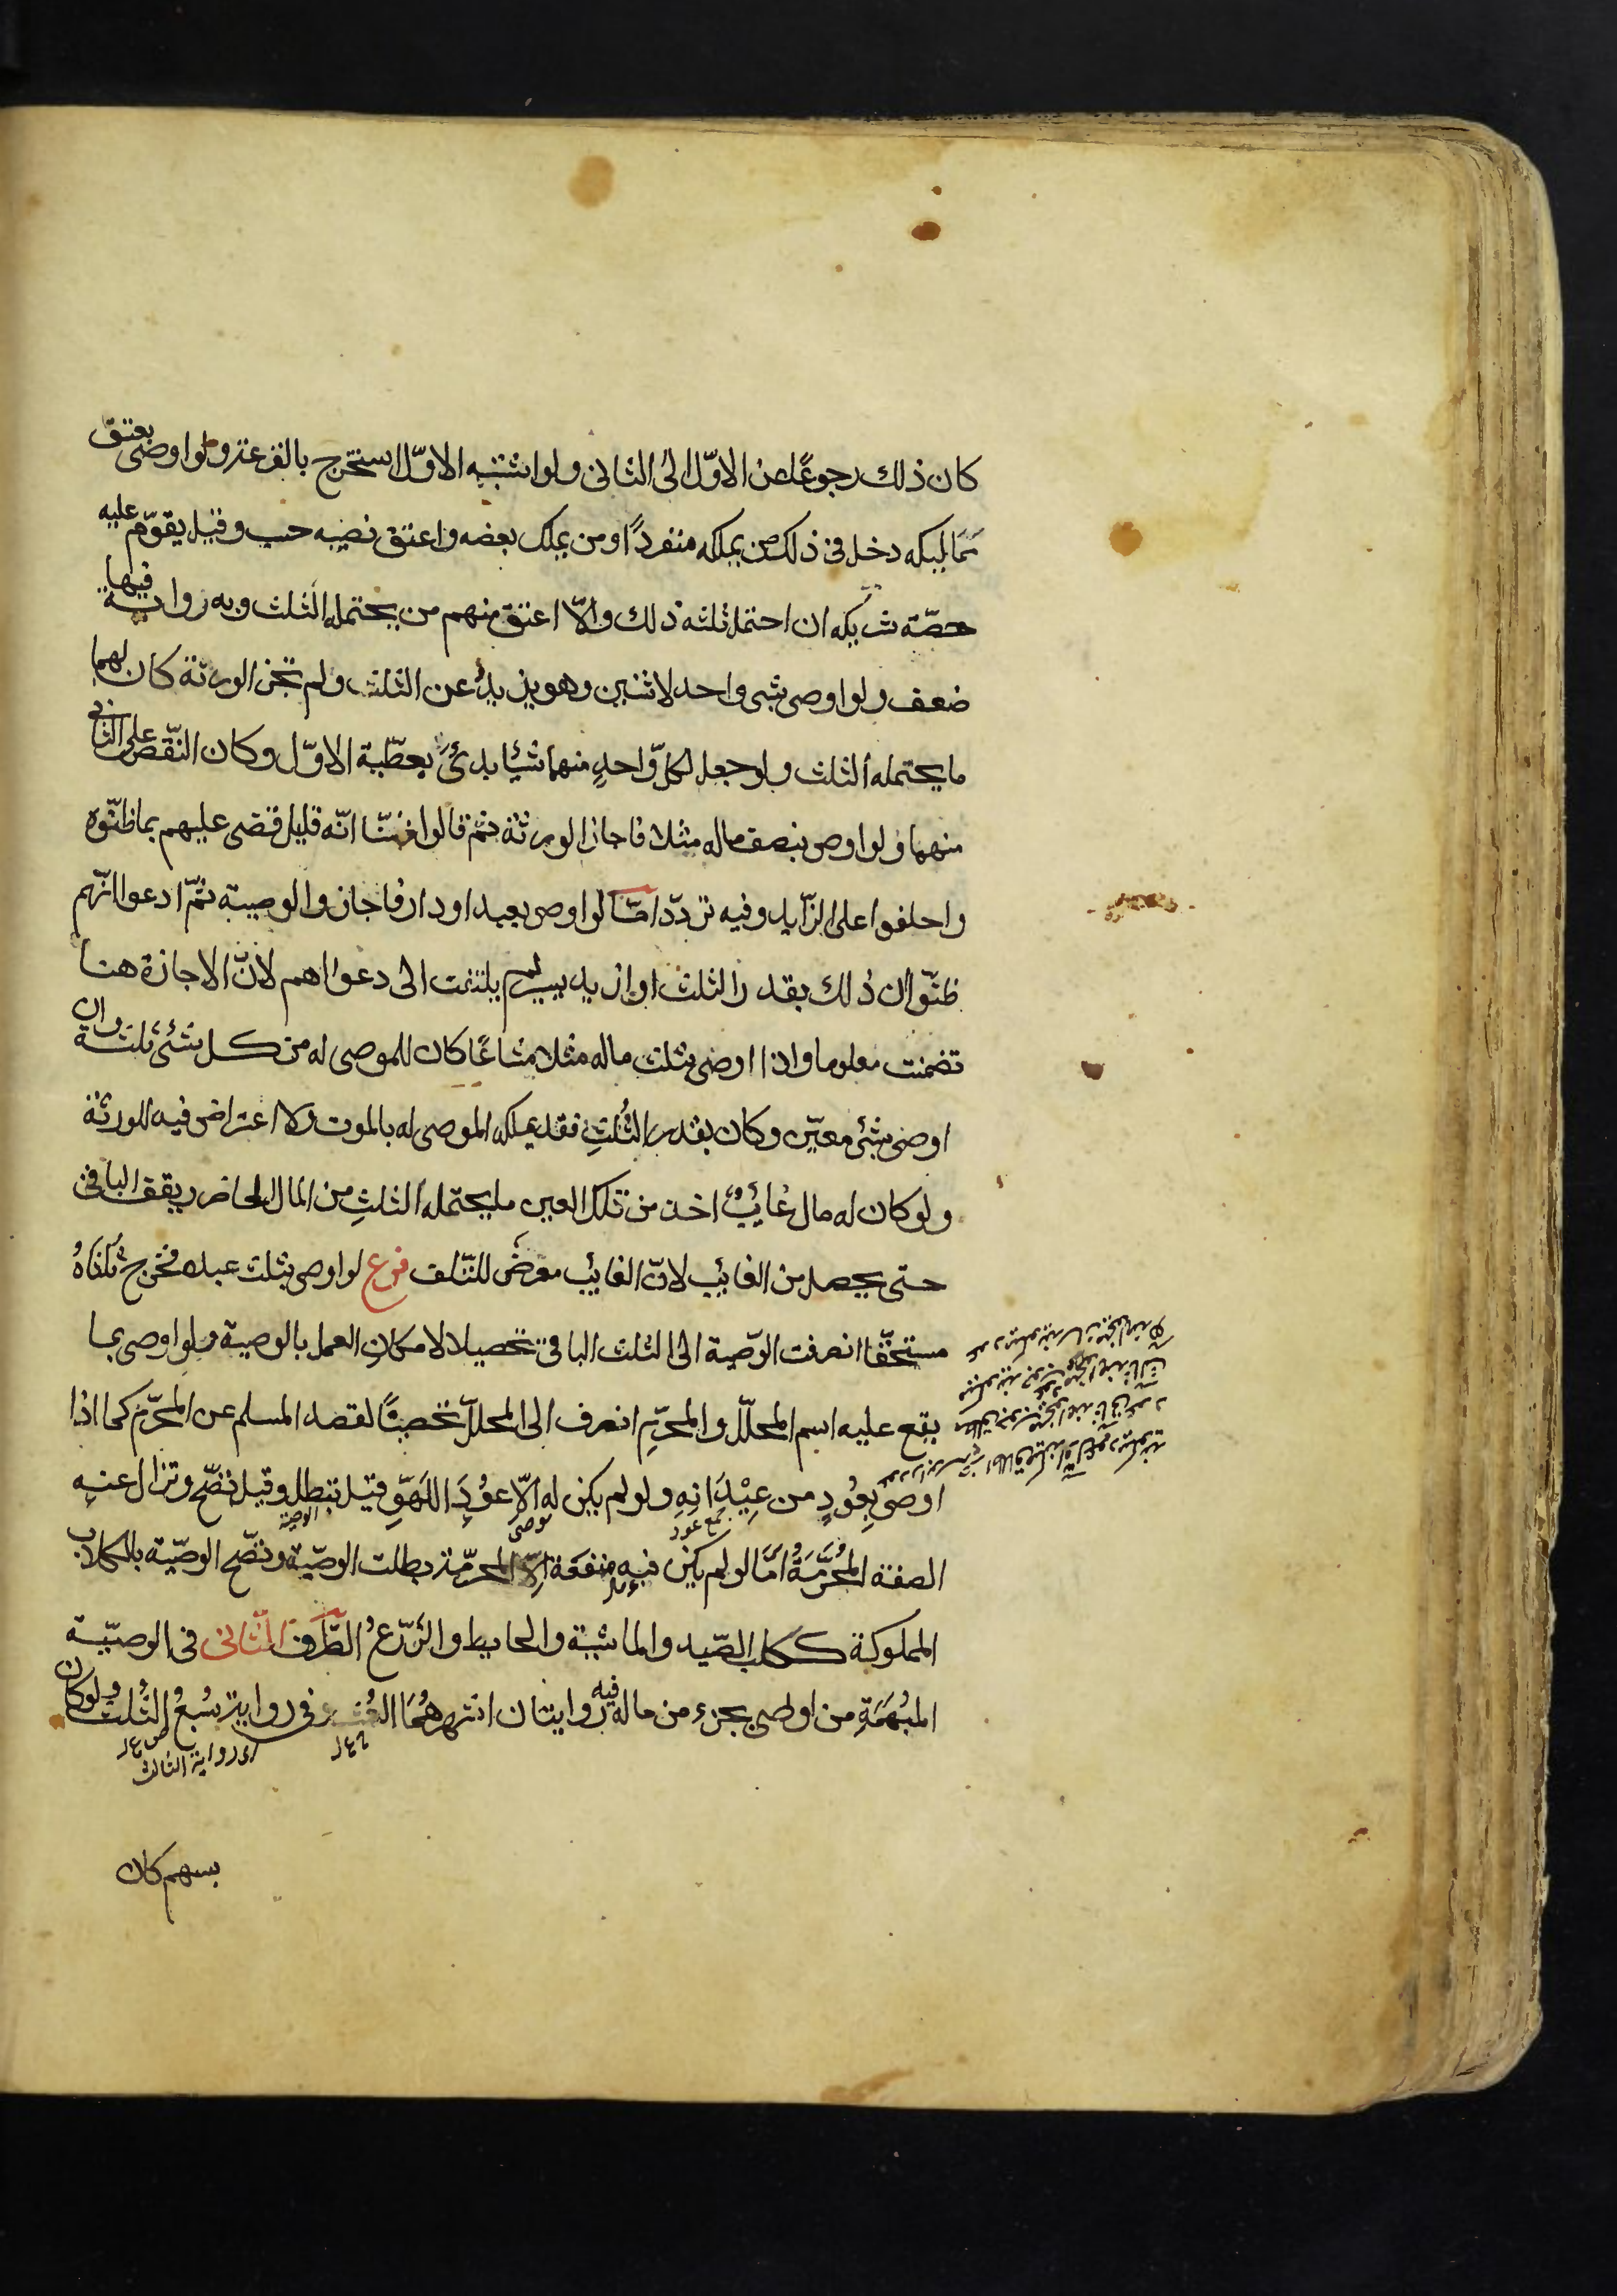 كان ذلك رجوعًا عن الاوّل الى الثانى ولو اشتبه الاوّل استخرج بالقرعة ولو اوصى بعتق
مماليكه دخل فى ذلك من يملكه منفردًا ومن يملك بعضه واعتق نصيبه حسب وقيل يقوّم عليه
حصّة شريكه ان احتمل ثلثه ذلك والّا اعتق منهم من يحتمله الثلث وبه رواية فيها
ضعف ولو اوصى بشى واحد لاثنين وهو يزيدُ عن الثلث ولم تجز الورثة كان لهما
ما يحتمله الثلث ولو جعل لكلّ واحدٍ منهما شيئا بدئ بعطّية الاوّل وكان النّقص على الثانى
منهما ولو اوصى بنصف ماله مثلا فاجاز الورثة ثمّ قالوا ظننّا انّه قليل قضى عليهم بما ظنّوه
واحلفوا على الزّايد وفيه تردّد امّا لو اوصى بعبد او دار فاجازوا الوصية ثمّ ادعوا انّهم
ظنّوا ان ذلك بقدر الثلث او ازيد بيسير لم يلتفت الى دعواهم لانّ الاجازة هنا
تضمنت معلوما واذا اوصى بثلث ماله مثلا مشاعًا كان للموصى له من كل شئ ثلثه وان
اوصى بشئ معيّن وكان بقدر الثُلثِ فقد يملكه الموصى له بالموت ولا اعتراض فيه للورثة
ولو كان له مال غائبٌ اخذ من تلك العين ما يحتمله الثلثِ من المال الحاضر ويقف الباقى
حتى يحصل من الغائب لانّ الغائب معرّضٌ للتّلف فرع لو اوصى بثلث عبده فخرج ثُلثَاهُ
مستحقّا انصرفت الوّصية الى الثلث الباقى تحصيلا لامكان العمل بالوصية ولو اوصى بما
يقع عليه اسم المحلّل والمحرّمِ انصرف الى المحلّل تحصينًا لقصد المسلم عن المحرّم كما اذا
اوصى بِعُودٍ من عِيْدَانِهِ ولو لم يكن له الّا عوُدَ اللَهوِّ قيل تبطل وقيل تصّح وتزال عنه
جمع عود
الوصية
الصفة المُحَرَّمَةُ امَّا لو لم يكن فيه منفعَة الِّا المحرّمة بطلت الوصّية وتصّح الوصّية بالكلاب
المملوكة ككلب الصّيد والماشية والحايط والزّرعُ الطَّرف الثّانى فى الوصيّة
المبُهَمَةِ من اوصى بجزء من ماله فيه روايتان اشهرهُمَا العُشر وفى رواية سُبعُ الثُلث ولو كان
اى رواية الثالث
بسهم كان